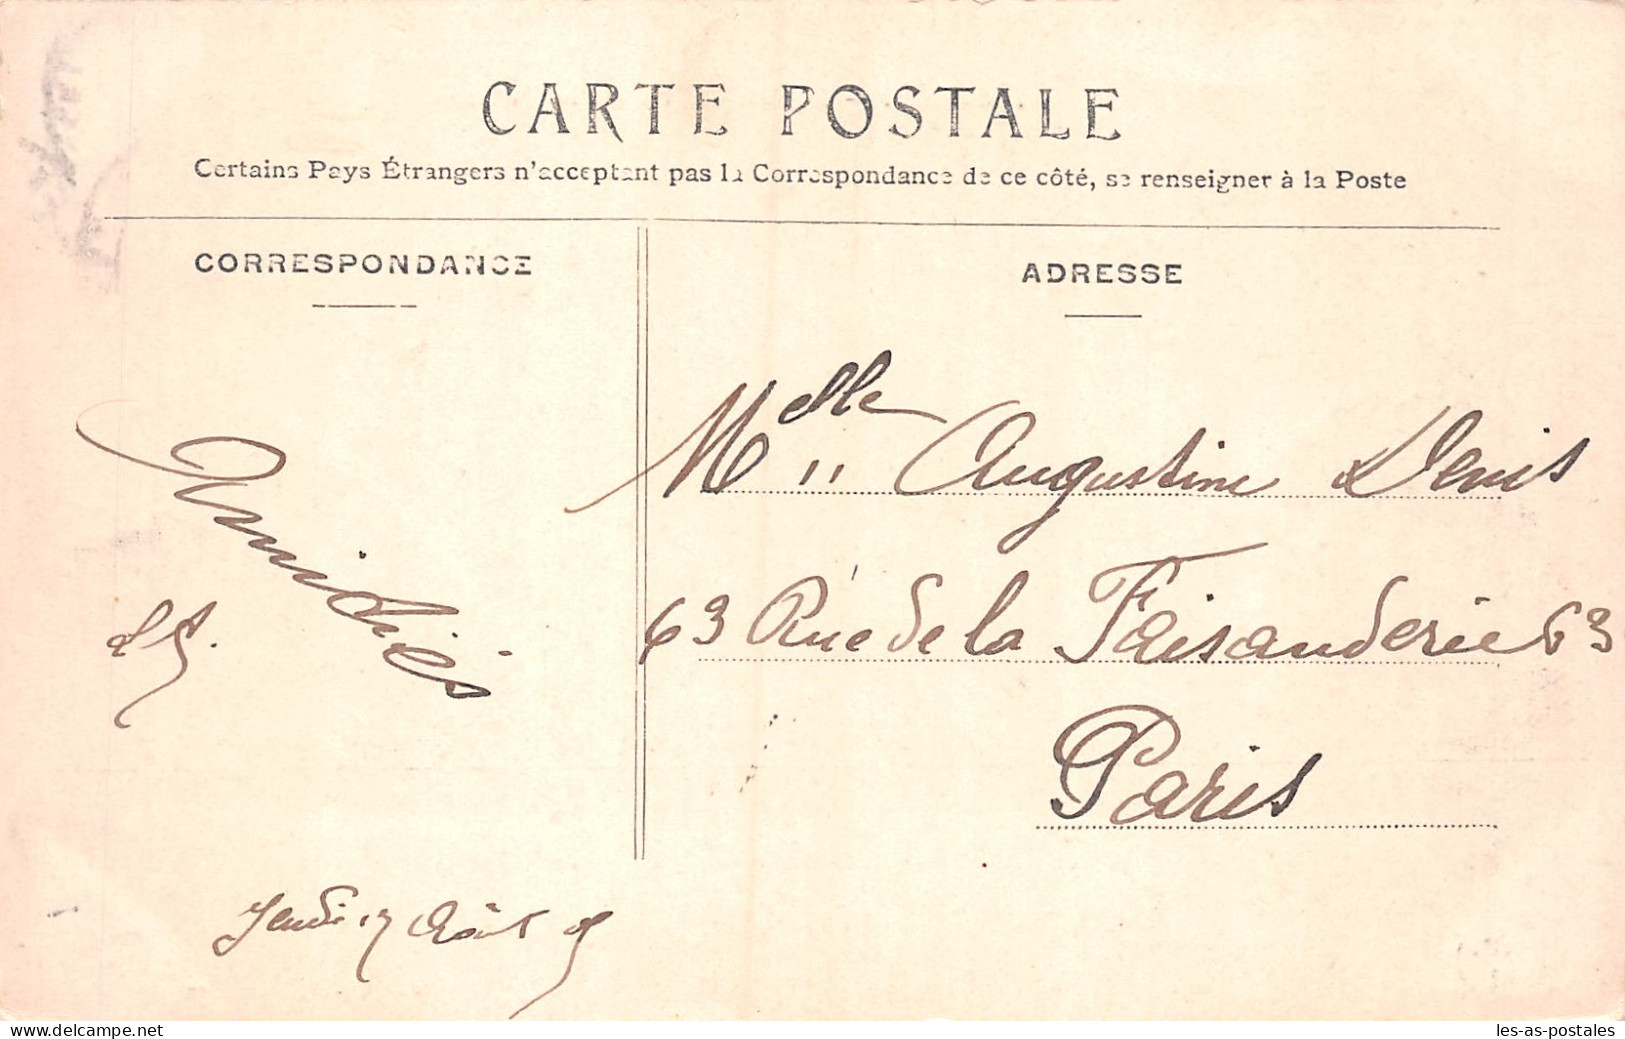 CARTE POSTALE
Certains Pays Étrangers n'acceptant pas la Correspondance de ce côté, se renseigner à la Poste
CORRESPONDANCE
ADRESSE
Melle Augustine Denis
63 Rue de la Faisanderie 63
Paris
Amitiés
Jeudi 17 Août
www.delcampe.net
les-as-postales